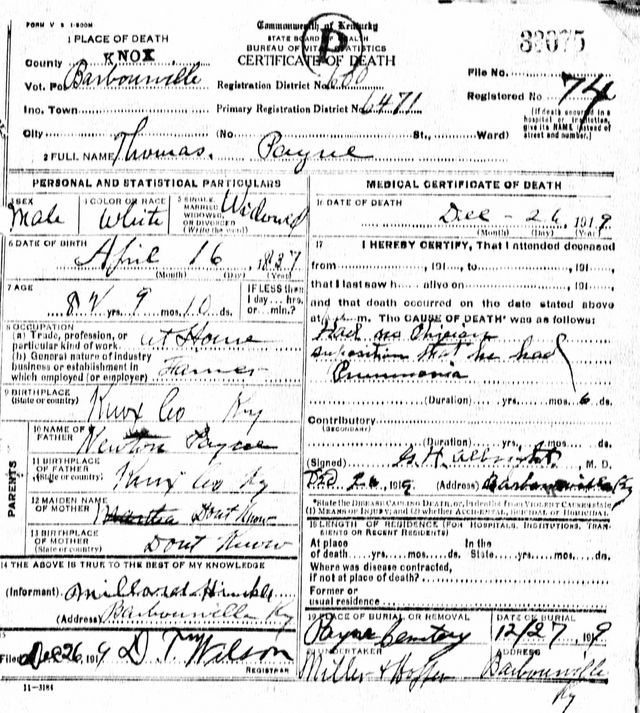 FORM V S 1-500M
Commonwealth of Kentucky
STATE BOARD OF HEALTH
BUREAU OF VITAL STATISTICS
CERTIFICATE OF DEATH
P
1 PLACE OF DEATH
County KNOX,
Vot. Pct Barbourville
Inc. Town
City (No. St., Ward)
Registration District No. 600
Primary Registration District No. 6471
33075
File No.
Registered No 74
(If death occurred in a hospital or institution, give its NAME instead of street and number.)
2 FULL NAME Thomas. Payne
PERSONAL AND STATISTICAL PARTICULARS
3 SEX Male
4 COLOR OR RACE White
5 SINGLE, MARRIED, WIDOWED, OR DIVORCED (Write the word) Widowed
6 DATE OF BIRTH
April 16, 1837
(Month) (Day) (Year)
7 AGE
82 yrs. 9 mos. 10 ds.
IF LESS than 1 day... hrs. or... min.?
8 OCCUPATION
(a) Trade, profession, or particular kind of work at Home
(b) General nature of industry business or establishment in which employed (or employer) Farmer
9 BIRTHPLACE (State or country) Knox Co Ky
PARENTS
10 NAME OF FATHER Newton Payne
11 BIRTHPLACE OF FATHER (State or country) Knox Co Ky
12 MAIDEN NAME OF MOTHER Martha Dont Know
13 BIRTHPLACE OF MOTHER (State or country) Dont Know
14 THE ABOVE IS TRUE TO THE BEST OF MY KNOWLEDGE
(Informant) Millard Hinkle
(Address) Barbourville Ky
15
Filed Dec 26, 1919 D Tm Wilson
REGISTRAR
11-3184
MEDICAL CERTIFICATE OF DEATH
16 DATE OF DEATH
Dec - 26, 1919
(Month) (Day) (Year)
17 I HEREBY CERTIFY, That I attended deceased
from, 191, to, 191,
that I last saw h alive on, 191,
and that death occurred on the date stated above
at m. The CAUSE OF DEATH* was as follows:
Had no Phisian
suposition that he had
Pneumonia
(Duration) yrs. mos. 6 ds.
Contributory
(SECONDARY)
(Duration) yrs. mos. ds.
(Signed) G. H. Albright, M. D.
Dec 26, 1919 (Address) Barbourville Ky
*State the DISEASE CAUSING DEATH, or, in deaths from VIOLENT CAUSES state (1) MEANS OF INJURY; and (2) whether ACCIDENTAL, SUICIDAL or HOMICIDAL
18 LENGTH OF RESIDENCE (FOR HOSPITALS, INSTITUTIONS, TRANSIENTS OR RECENT RESIDENTS)
At place of death yrs. mos. ds. In the State yrs. mos. ds.
Where was disease contracted,
if not at place of death?
Former or
usual residence
19 PLACE OF BURIAL OR REMOVAL Payne Cemetery
DATE OF BURIAL 12/27, 1919
20 UNDERTAKER Miller &
ADDRESS Barbourville Ky